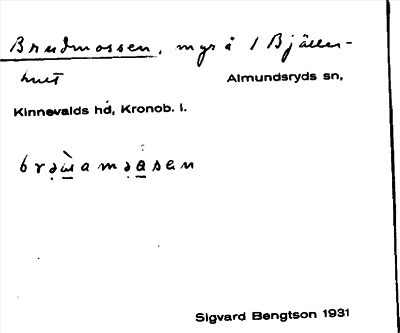 Brudmossen, myr å 1 Bjäller-
hult
Almundsryds sn,
Kinnevalds hd, Kronob. l.
Sigvard Bengtson 1931